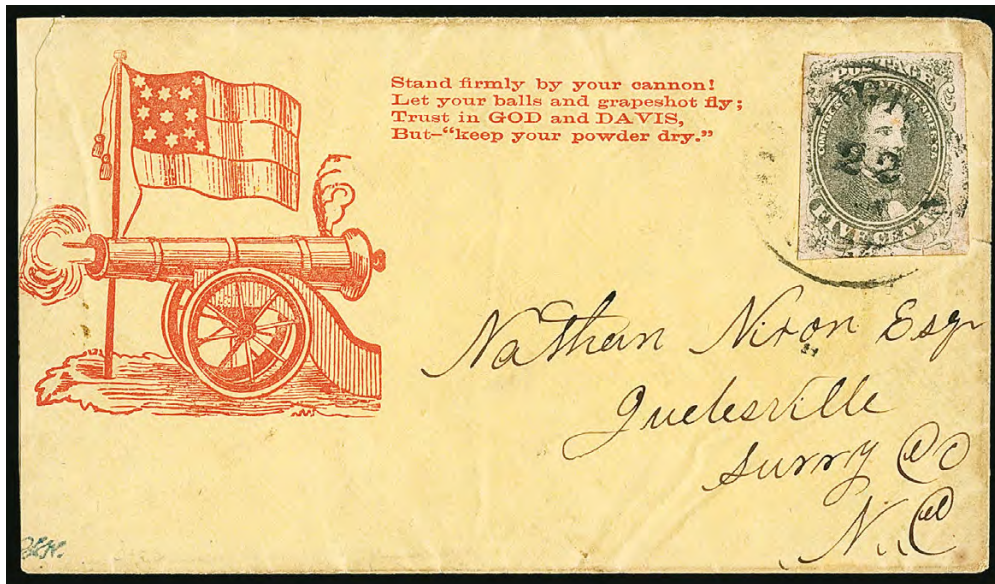 Stand firmly by your cannon!
Let your balls and grapeshot fly;
Trust in GOD and DAVIS,
But—“keep your powder dry.”
POSTAGE
CONFEDERATE STATES
22
FIVE CENTS
Nathan Nixon Esqr
Surry Co
N. C